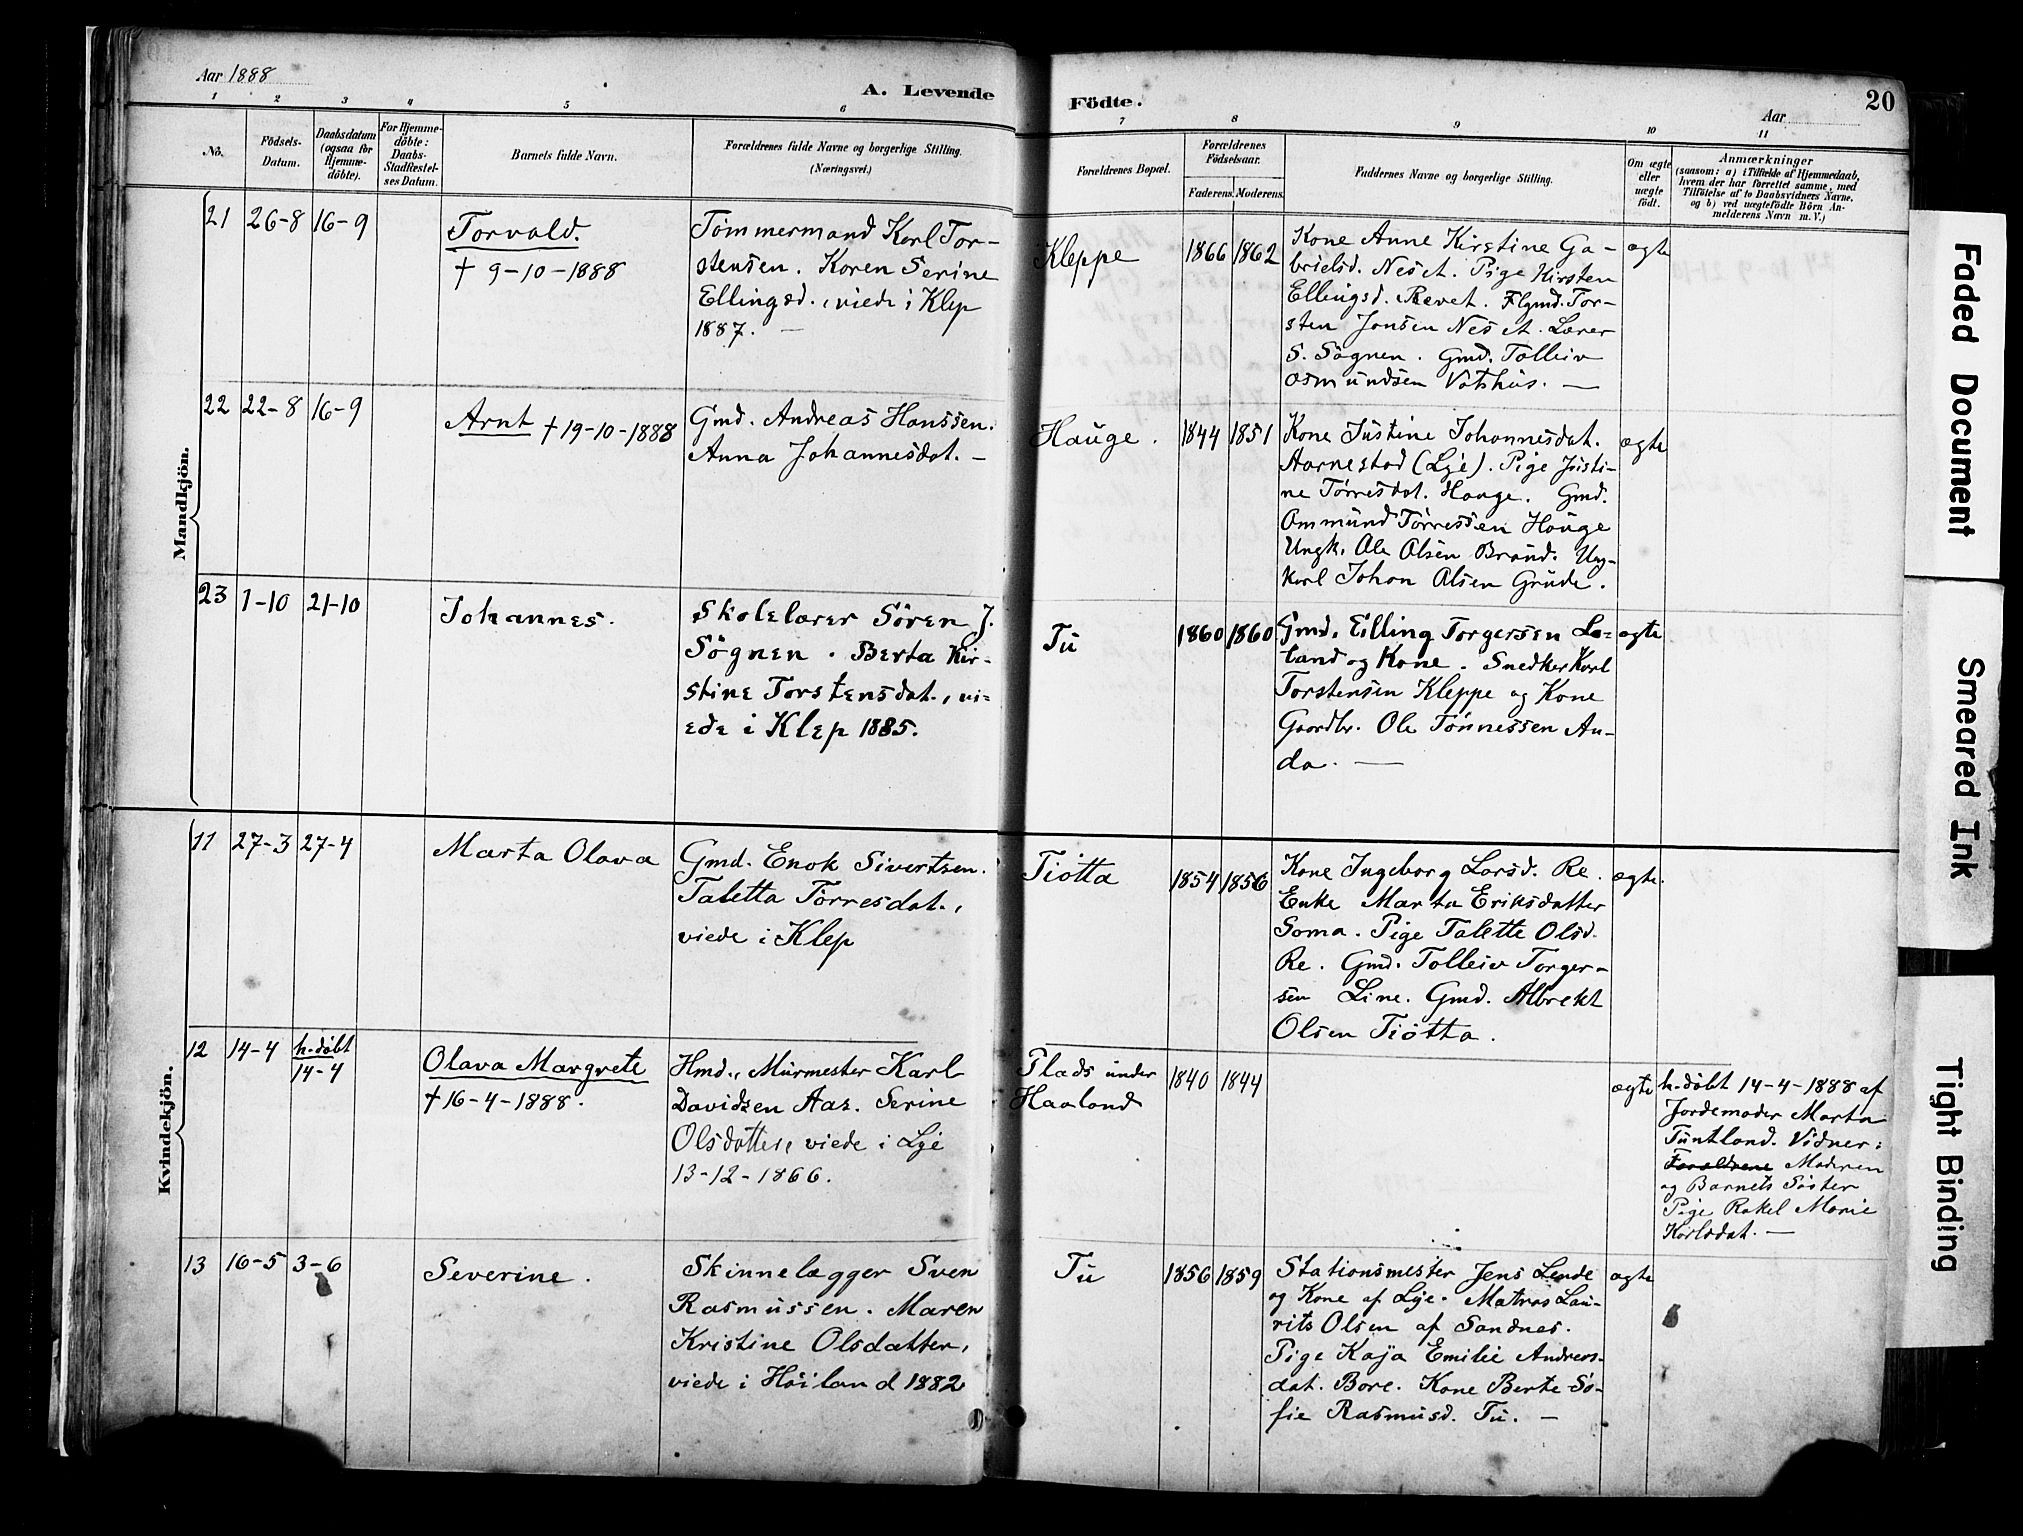 Aar 1888
A. Levende
Födte.
Aar
20
1 2 3 4 5 6 7 8 9 10 11
No.
Födsels-
Datum.
Daabsdatum
(ogsaa for
Hjemme-
döbte).
For Hjemme-
döbte:
Daabs-
Stadfæstel-
ses Datum.
Barnets fulde Navn.
Forældrenes fulde Navne og borgerlige Stilling.
(Næringsvei.)
Forældrenes Bopæl.
Forældrenes
Födselsaar.
Faderens. Moderens.
Faddernes Navne og borgerlige Stilling.
Om ægte
eller
uægte
födt.
Anmærkninger
(saasom: a) i Tilfælde af Hjemmedaab,
hvem der har forrettet samme, med
Tilföielse af to Daabsvidners Navne,
og b) ved uægtefödte Börn An-
melderens Navn m. V.)
Mandkjön.
21 26-8 16-9
Torvald.
† 9-10-1888
Tömmermand Karl Tor-
stensen. Karen Serine
Ellingsd., viede i Klep
1887. —
Kleppe
1866 1862
Kone Anne Kirstine Ga-
brielsd. Neset. Pige Kirsten
Ellingsd. Revet. Flgmd. Tor-
sten Jonsen Neset. Lærer
S. Sögnen. Gmd. Tolleiv
Osmundsen Vatshus. —
ægte
22 22-8 16-9
Arnt † 19-10-1888
Gmd. Andreas Hanssen.
Anna Johannesdat. —
Hauge.
1844 1851
Kone Justine Johannesdat.
Aarnestad (Lye). Pige Justi-
ne Törresdat. Hauge. Gmd.
Ommund Törressen Hauge
Ungk. Ole Olsen Braud. Ung-
karl Johan Olsen Grude.
ægte
23 1-10 21-10
Johannes.
Skolelærer Sören J.
Sögnen. Berta Kir-
stine Torstensdat., vi-
ede i Klep 1885.
Tu
1860 1860
Gmd. Elling Torgersen La-
land og Kone. Snedker Karl
Torstensen Kleppe og Kone
Gaardbr. Ole Tönnessen An-
da. —
ægte
Kvindekjön.
11 27-3 27-4
Marta Olava
Gmd. Enok Sivertsen.
Taletta Törresdat.,
viede i Klep
Tiötta
1854 1856
Kone Ingeborg Larsd. Re.
Enke Marta Eriksdatter
Soma. Pige Talette Olsd.
Re. Gmd. Tolleiv Torger-
sen Line. Gmd. Albrekt
Olsen Tiötta.
ægte.
12 14-4 h-döbt
14-4
Olava Margrete
† 16-4-1888.
Hmd., Murmester Karl
Davidsen Aas. Serine
Olsdatter, viede i Lye
13-12-1866.
Plads under
Haaland
1840 1844
ægte
h-döbt 14-4-1888 af
Jordemoder Marta
Tuntland. Vidner:
Forældrene Moderen
og Barnets Söster
Pige Rakel Marie
Karlsdat. —
13 16-5 3-6
Severine.
Skinnelægger Sven
Rasmussen. Maren
Kristine Olsdatter,
viede i Höiland 1882
Tu
1856 1859
Stationsmester Jens Lende
og Kone af Lye. Matros Lau-
rits Olsen af Sandnes.
Pige Kaja Emilie Andreas-
dat. Bore. Kone Berte So-
fie Rasmusd. Tu. —
ægte
Faded Document
Smeared Ink
Tight Binding